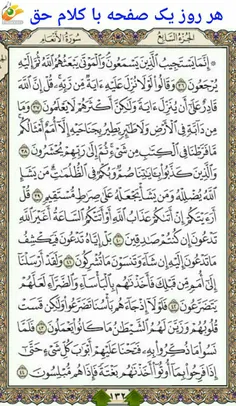 هر روز یک صفحه با کلام حق
الجزء السابع
سورة الأنعام
إنما يستجيب الذين يسمعون والموتى يبعثهم الله ثم إليه
يرجعون ٣٦ وقالوا لولا نزل عليه ءاية من ربه قل إن الله
قادر على أن ينزل ءاية ولكن أكثرهم لا يعلمون ٣٧ وما
من دابة في الأرض ولا طئر يطير بجناحيه إلا أمم أمثالكم
ما فرطنا في الكتب من شيء ثم إلى ربهم يحشرون ٣٨
والذين كذبوا بءايتنا صم وبكم في الظلمت من يشإ
الله يضلله ومن يشأ يجعله على صرط مستقيم ٣٩ قل
أرءيتكم إن أتىكم عذاب الله أو أتتكم الساعة أغير الله
تدعون إن كنتم صدقين ٤٠ بل إياه تدعون فيكشف
ما تدعون إليه إن شاء وتنسون ما تشركون ٤١ ولقد أرسلنا
إلى أمم من قبلك فأخذنهم بالبأساء والضراء لعلهم
يتضرعون ٤٢ فلولا إذ جاءهم بأسنا تضرعوا ولكن قست
قلوبهم وزين لهم الشيطن ما كانوا يعملون ٤٣ فلما
نسوا ما ذكروا به فتحنا عليهم أبوب كل شيء حتى
إذا فرحوا بما أوتوا أخذنهم بغتة فإذا هم مبلسون ٤٤
١٣٢